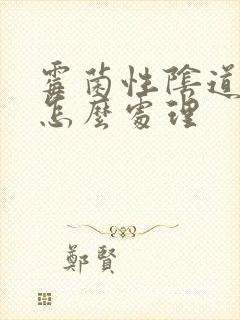 霉菌性陰道
怎麼處理
鄭賢